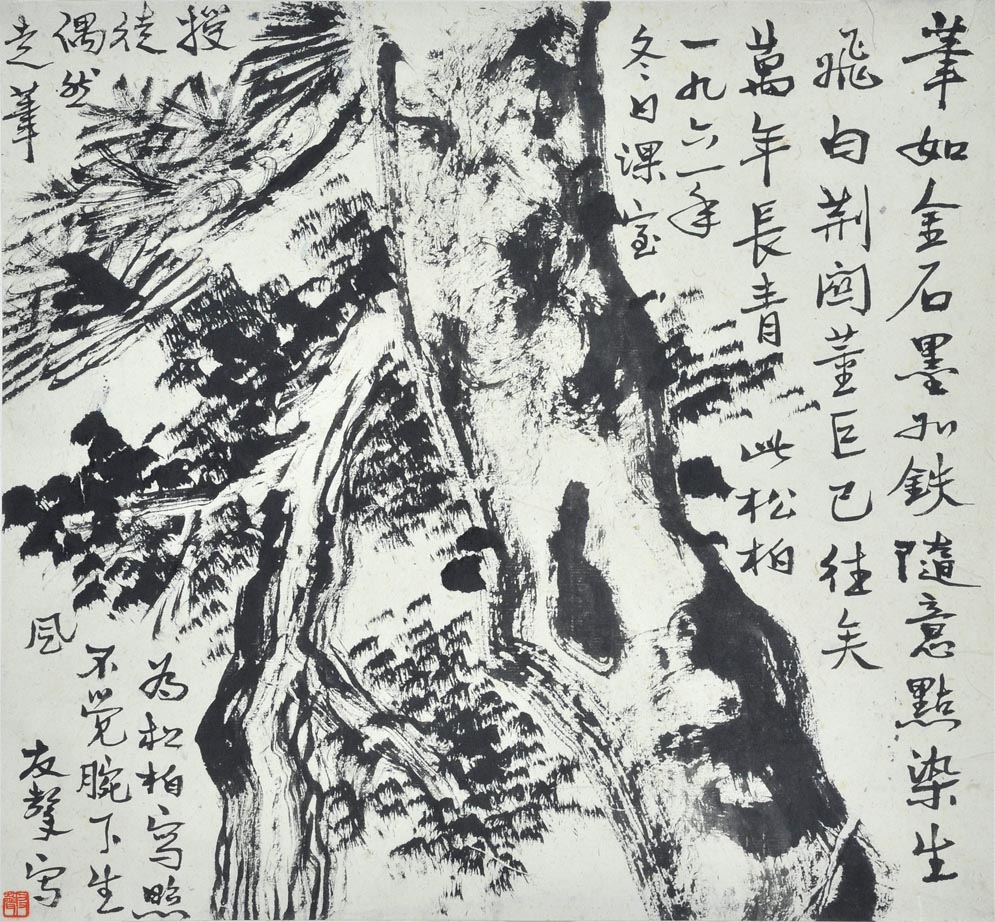 筆如金石墨如鉄隨意點染生
飛白荆関董巨已往矣
萬年長青 此松柏
一九六一年
冬日課室
授
徒
偶然
走筆
为松柏写照
不觉腕下生
风
友聲写